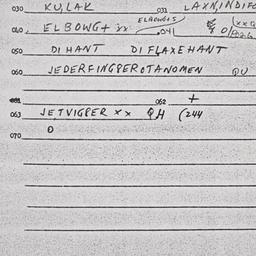 030 KU,LAK 031 LAXN,INDIFG
ELBOWGS
040, ELBOWG+ xx 041
050 DI HANT DI FLAXEHANT
060 JEDERFINGPEROTANOMEN QU
061 062 +
063 JETVIGPER xx QH (244
070 0